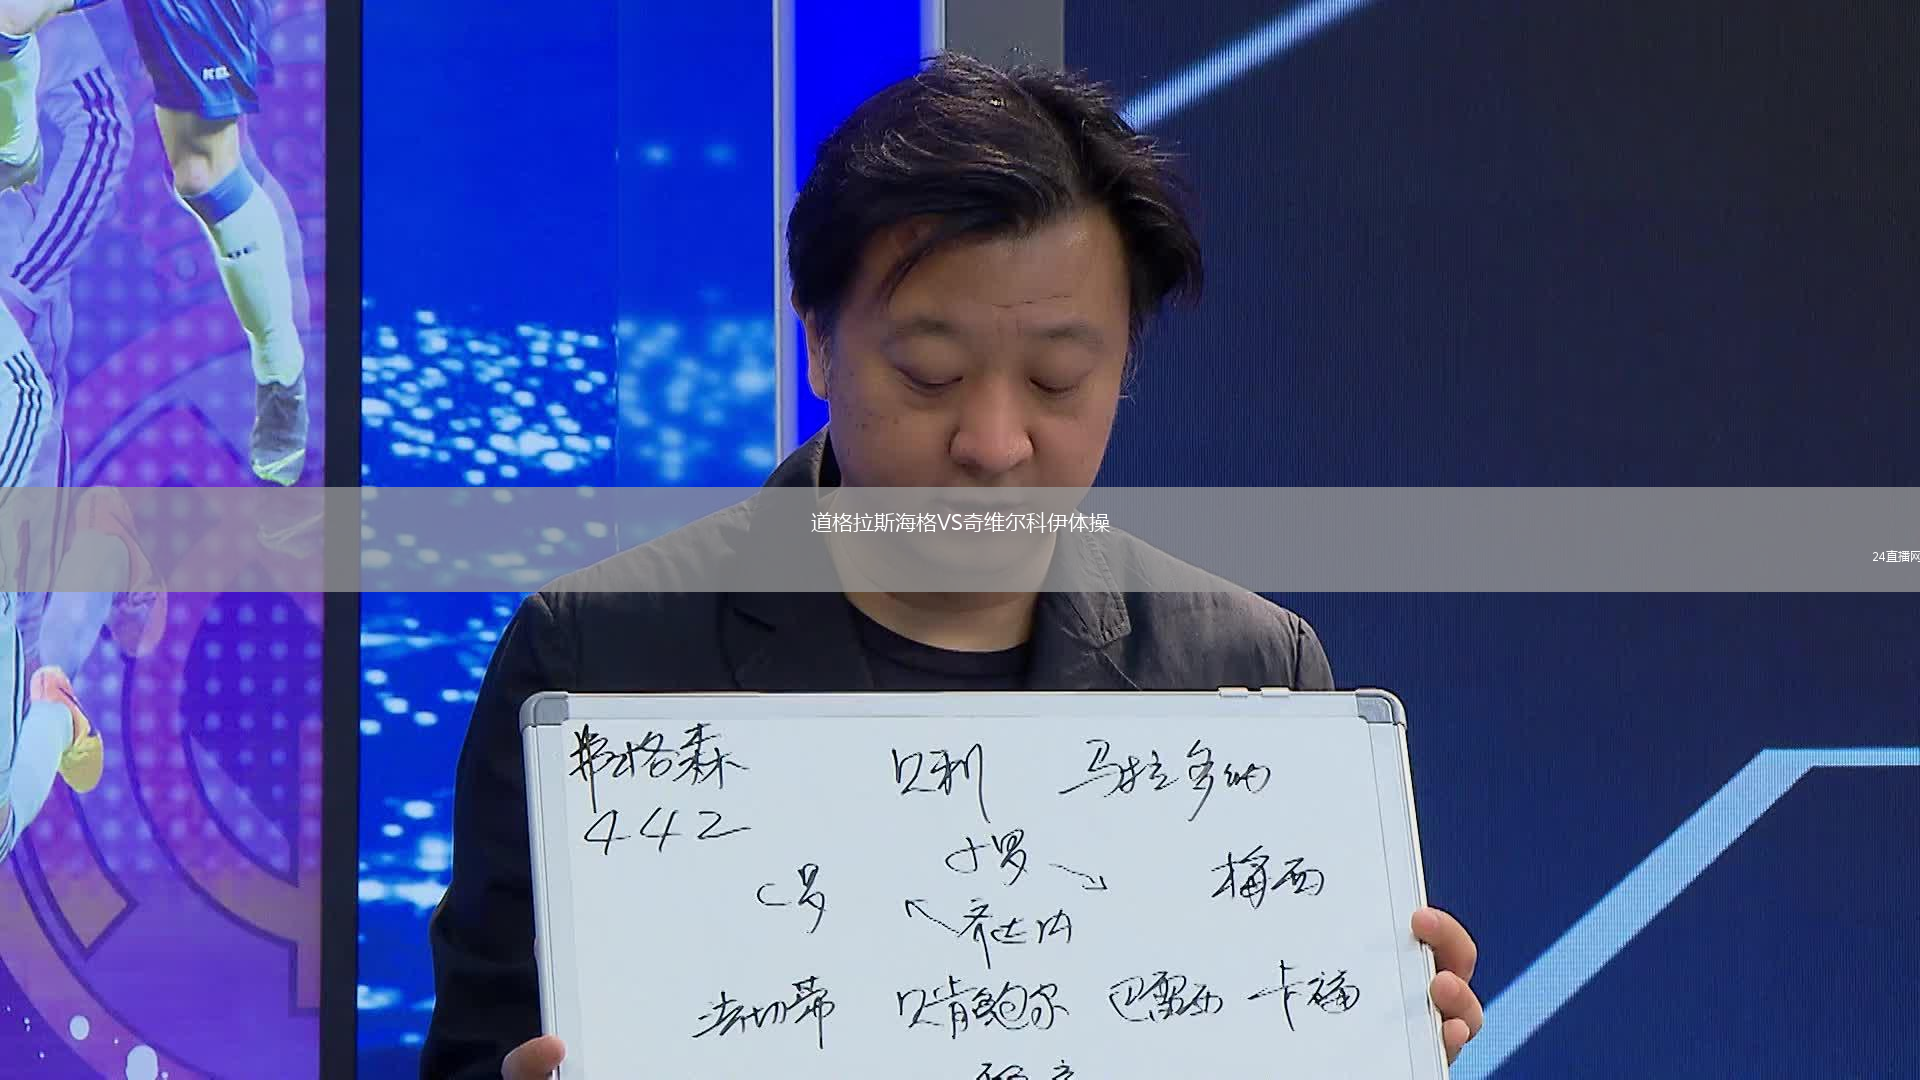 道格拉斯海格VS奇维尔科伊体操
24直播网
弗格森 贝利 马拉多纳
442
小罗
C罗 梅西
齐达内
法切蒂 贝肯鲍尔 巴雷西 卡福